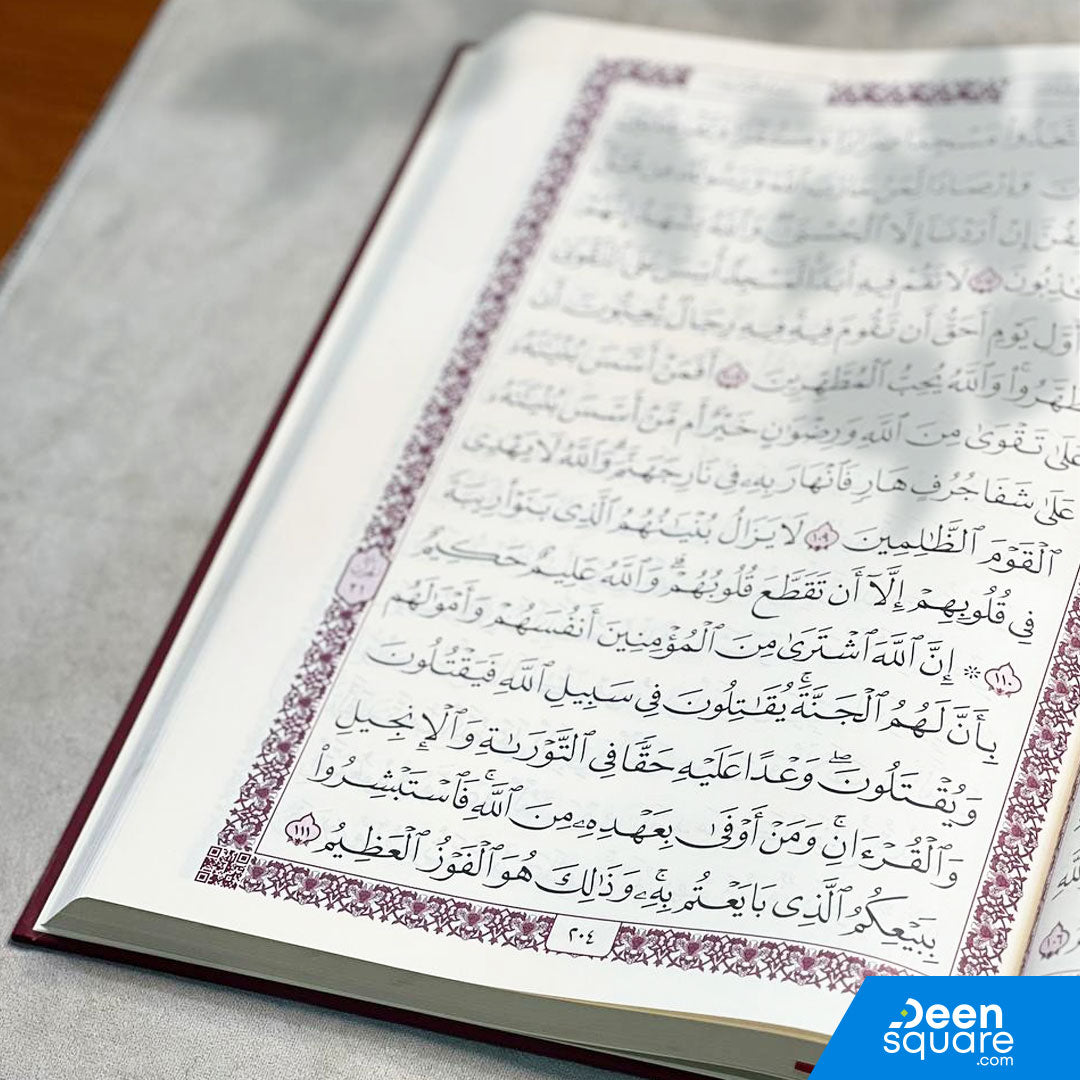 وَإِرْصَادًا لِّمَنْ حَارَبَ ٱللَّهَ وَرَسُولَهُۥ مِن قَبْلُ
إِنْ أَرَدْنَآ إِلَّا ٱلْحُسْنَىٰ وَٱللَّهُ يَشْهَدُ إِنَّهُمْ
لَا تَقُمْ فِيهِ أَبَدًا لَّمَسْجِدٌ أُسِّسَ عَلَى ٱلتَّقْوَىٰ
أَوَّلِ يَوْمٍ أَحَقُّ أَن تَقُومَ فِيهِ فِيهِ رِجَالٌ يُحِبُّونَ أَن
وَٱللَّهُ يُحِبُّ ٱلْمُطَّهِّرِينَ ١٠٨ أَفَمَنْ أَسَّسَ بُنْيَٰنَهُۥ
عَلَىٰ تَقْوَىٰ مِنَ ٱللَّهِ وَرِضْوَٰنٍ خَيْرٌ أَم مَّنْ أَسَّسَ بُنْيَٰنَهُۥ
عَلَىٰ شَفَا جُرُفٍ هَارٍ فَٱنْهَارَ بِهِۦ فِى نَارِ جَهَنَّمَ وَٱللَّهُ لَا يَهْدِى
ٱلْقَوْمَ ٱلظَّٰلِمِينَ ١٠٩ لَا يَزَالُ بُنْيَٰنُهُمُ ٱلَّذِى بَنَوْا۟ رِيبَةً
فِى قُلُوبِهِمْ إِلَّآ أَن تَقَطَّعَ قُلُوبُهُمْ ۗ وَٱللَّهُ عَلِيمٌ حَكِيمٌ
١١٠ ۞ إِنَّ ٱللَّهَ ٱشْتَرَىٰ مِنَ ٱلْمُؤْمِنِينَ أَنفُسَهُمْ وَأَمْوَٰلَهُم
بِأَنَّ لَهُمُ ٱلْجَنَّةَ ۚ يُقَٰتِلُونَ فِى سَبِيلِ ٱللَّهِ فَيَقْتُلُونَ
وَيُقْتَلُونَ ۖ وَعْدًا عَلَيْهِ حَقًّا فِى ٱلتَّوْرَىٰةِ وَٱلْإِنجِيلِ
وَٱلْقُرْءَانِ ۚ وَمَنْ أَوْفَىٰ بِعَهْدِهِۦ مِنَ ٱللَّهِ ۚ فَٱسْتَبْشِرُوا۟
بِبَيْعِكُمُ ٱلَّذِى بَايَعْتُم بِهِۦ ۚ وَذَٰلِكَ هُوَ ٱلْفَوْزُ ٱلْعَظِيمُ ١١١
٢٠٤
١٠٦
Deen
square
.com